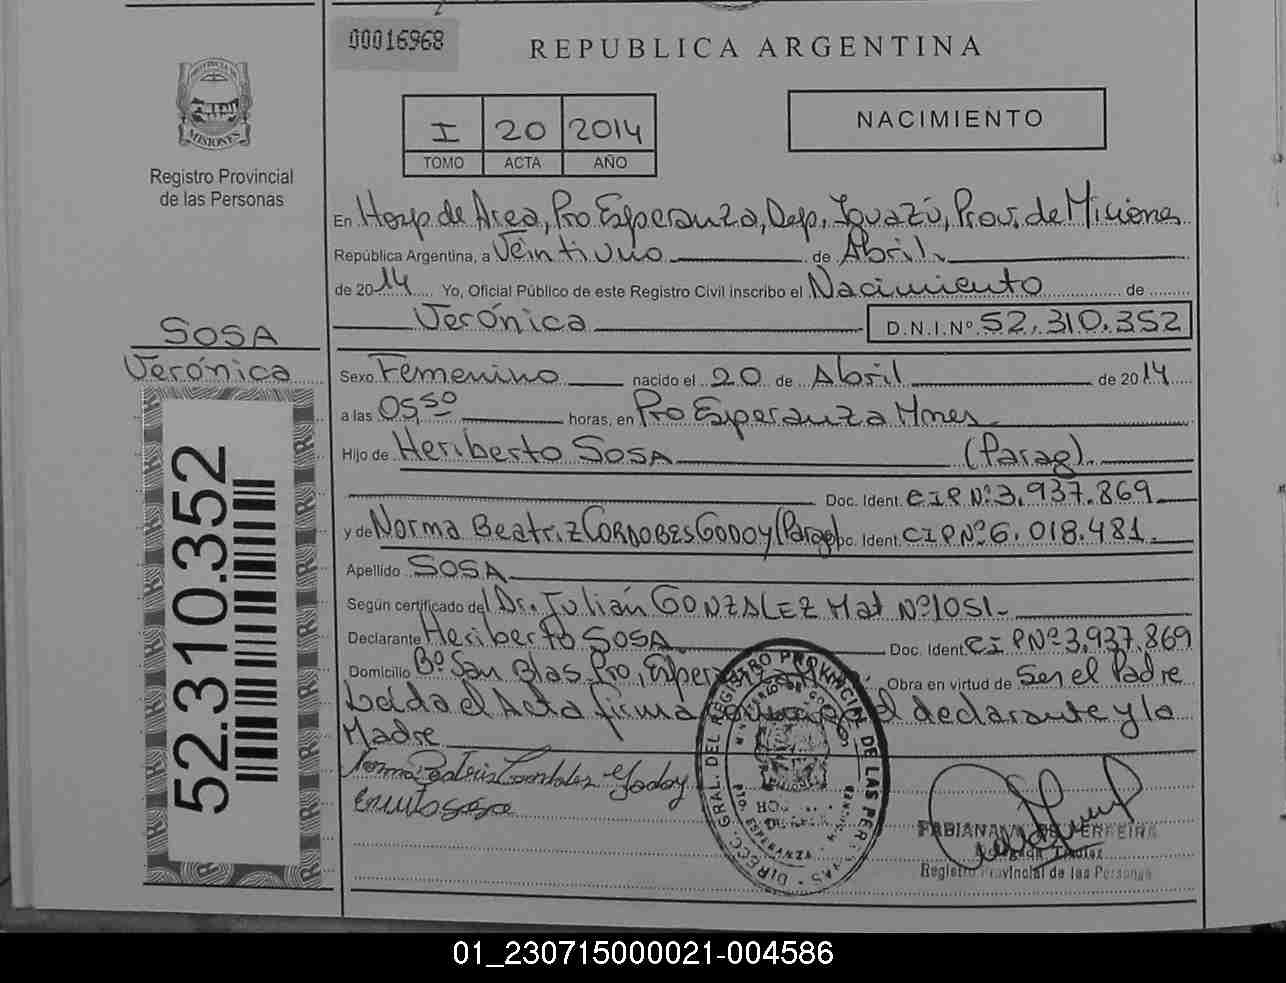 00016968
REPUBLICA ARGENTINA
PROVINCIA DE
MISIONES
Registro Provincial
de las Personas
I 20 2014
TOMO ACTA AÑO
NACIMIENTO
En Hosp de Area, Pto Esperanza, Dep. Iguazú, Prov. de Miciones
República Argentina, a Veintiuno de Abril
de 2014 Yo, Oficial Público de este Registro Civil inscribo el Nacimiento de
Verónica D.N.I.Nº 52.310.352
SOSA
Verónica
52.310.352
Sexo Femenino nacido el 20 de Abril de 2014
a las 05,50 horas, en Pto Esperanza Mnes
Hijo de Heriberto SOSA (Parag).
Doc. Ident. CIP Nº 3.937.869
y de Norma Beatriz CORDOBES GODOY (Parag) Doc. Ident. CIP Nº 6.018.481
Apellido SOSA
Según certificado del Dr. Julián GONZALEZ Mat Nº 1051
Declarante Heriberto SOSA Doc. Ident. CI P Nº 3.937.869
Domicilio Bº San Blas, Pto, Esperanza Obra en virtud de Ser el Padre
Leida el Acta firma el declarante y la
Madre
DIRECC. GRAL. DEL REGISTRO PROVINCIAL DE LAS PERSONAS
MINISTERIO DE GOBIERNO
PTO. ESPERANZA
Registro Provincial de las Personas
01_230715000021-004586